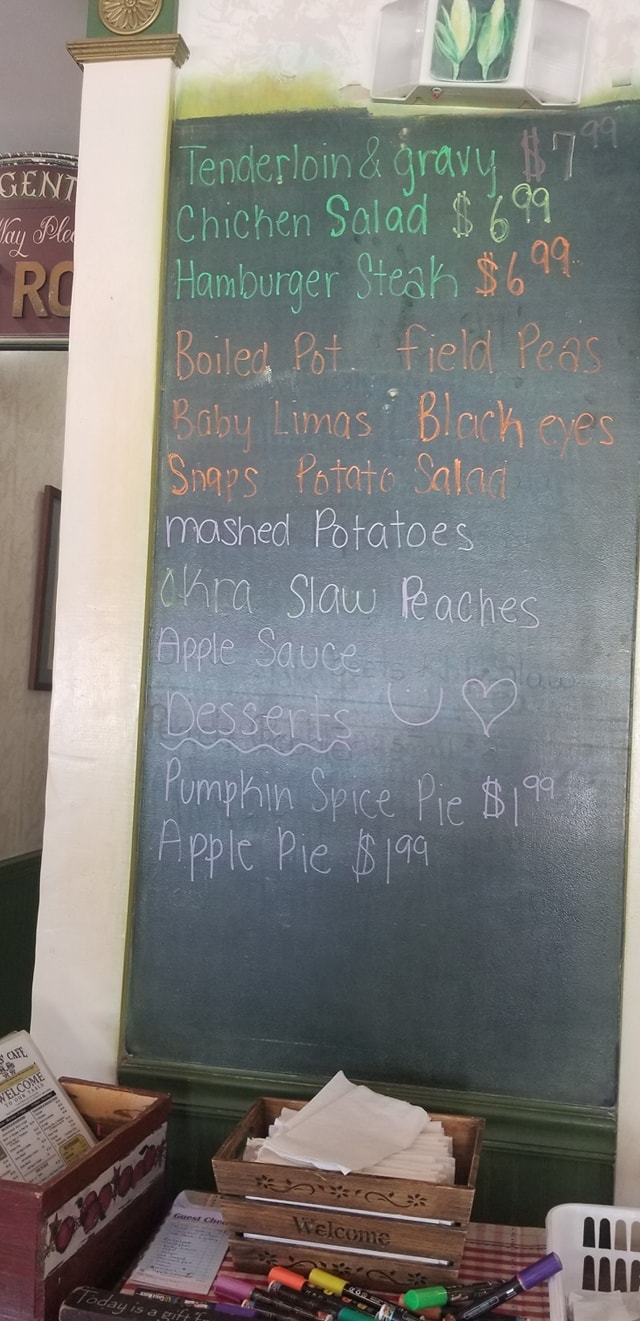 Tenderloin & gravy $7 99
Chicken Salad $6 99
Hamburger Steak $6 99
Boiled Pot field Peas
Baby Limas Black eyes
Snaps Potato Salad
mashed Potatoes
Okra Slaw Peaches
Apple Sauce
Desserts
Pumpkin Spice Pie $1 99
Apple Pie $1 99
GENT
Way
RO
CAFE
WELCOME
TO OUR TABLE
Guest
Welcome
Today is a gift